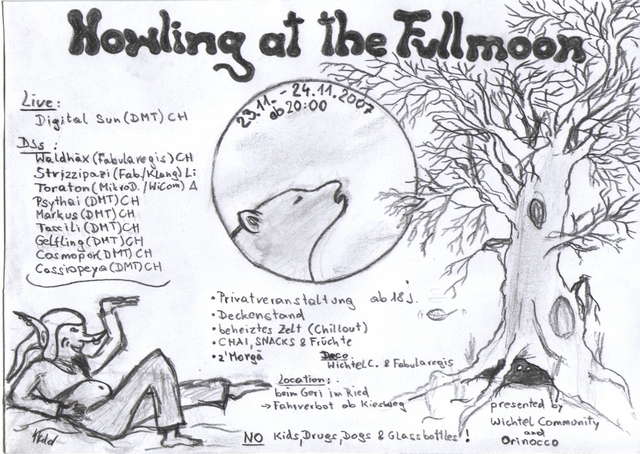 Howling at the Fullmoon
23.11. - 24.11.2007
ab 20:00
Live:
Digital Sun (DMT) CH
DJs:
Waldhäx (Fabularegis) CH
Strizzipazi (Fab./Klang) Li
Toraton (MikroD./WiCom) A
Psythai (DMT) CH
Markus (DMT) CH
Tassili (DMT) CH
Gelfling (DMT) CH
Cosmopor (DMT) CH
Cassiopeya (DMT) CH
• Privatveranstaltung ab 18 J.
• Deckenstand
• beheiztes Zelt (Chillout)
• CHAI, SNACKS & Früchte
• z'Morgä
Deco:
Wichtel C. & Fabularegis
Location:
beim Geri im Ried
→ Fahrverbot ab Kiesweg
presented by
Wichtel Community
and
Orinocco
NO Kids, Drugs, Dogs & Glassbottles!